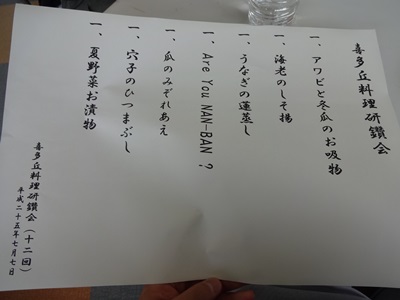 喜多丘料理研鑽会
一、アワビと冬瓜のお吸物
一、海老のしそ揚
一、うなぎの蓮蒸し
一、Are You NAN-BAN ?
一、瓜のみぞれあえ
一、穴子のひつまぶし
一、夏野菜お漬物
喜多丘料理研鑽会（十二回）
平成二十五年七月七日